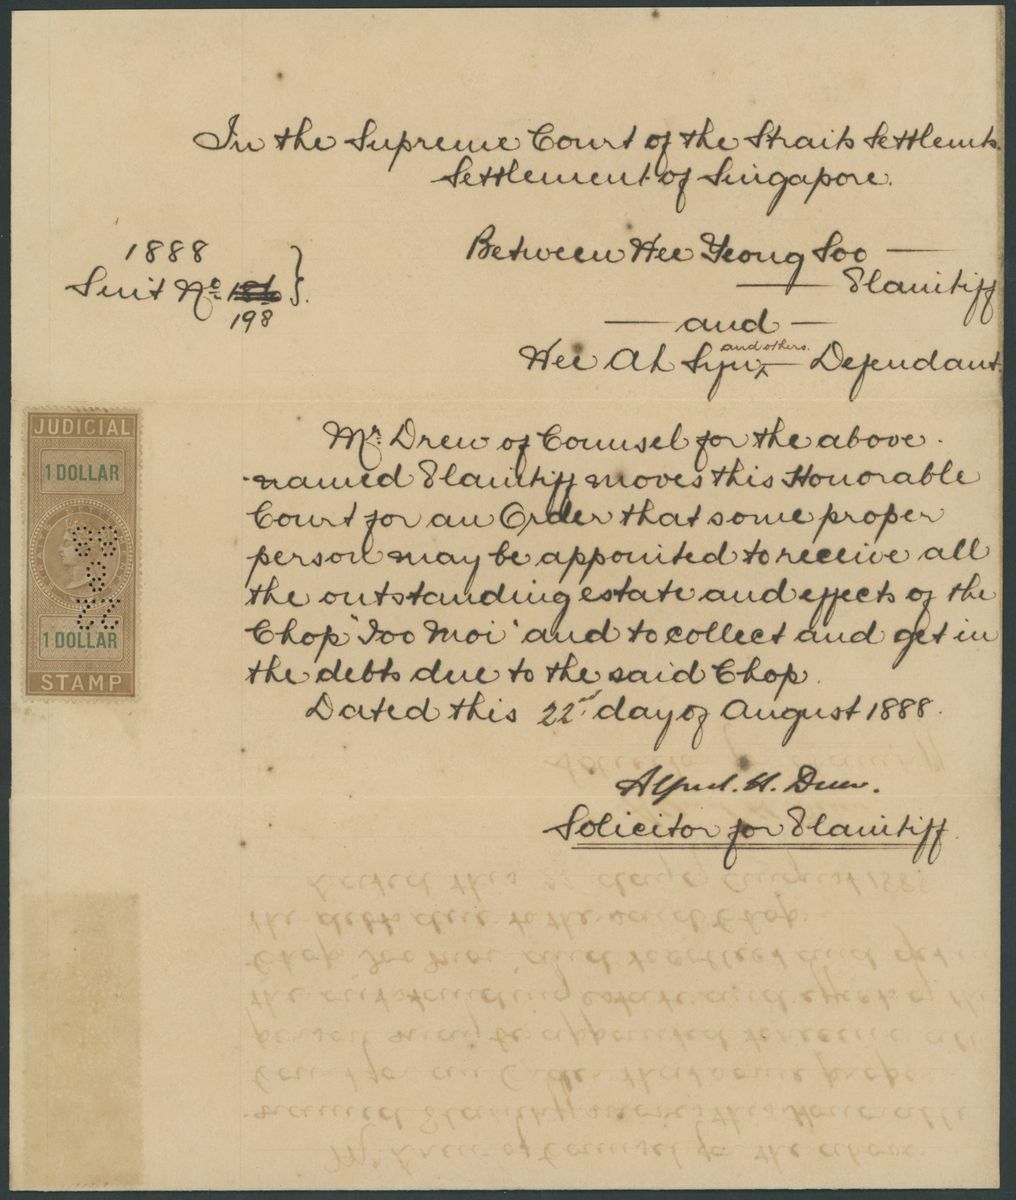 In the Supreme Court of the Straits Settlemts.
Settlement of Singapore.
1888
Suit No 186
198
Between Hee Yeong Soo
Plaintiff
and
Hee Ah Syn and others. Defendant
Mr. Drew of Counsel for the above
named Plaintiff moves this Honorable
Court for an Order that some proper
person may be appointed to receive all
the outstanding estate and effects of the
Chop "Joo Moi" and to collect and get in
the debts due to the said Chop.
Dated this 22nd day of August 1888.
Alfred. H. Drew.
Solicitor for Plaintiff.
JUDICIAL
1 DOLLAR
88
8
22
1 DOLLAR
STAMP